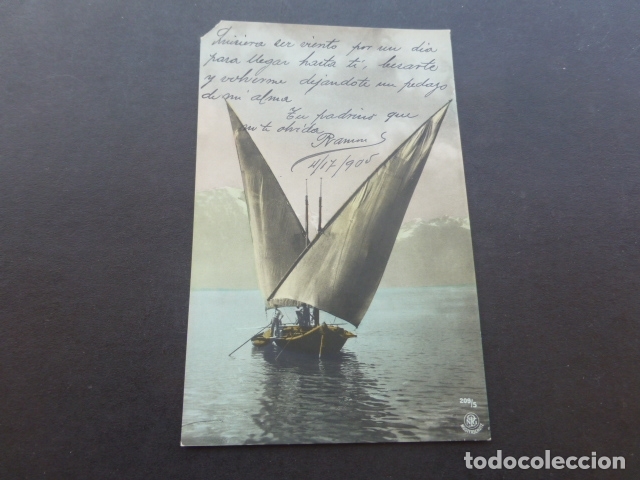 Quisiera ser viento por un dia
para llegar hasta ti, besarte
y volverme dejandote un pedazo
de mi alma
Tu padrino que
no ti olvida
Ramon
4/17/905
299/3
todocoleccion.net